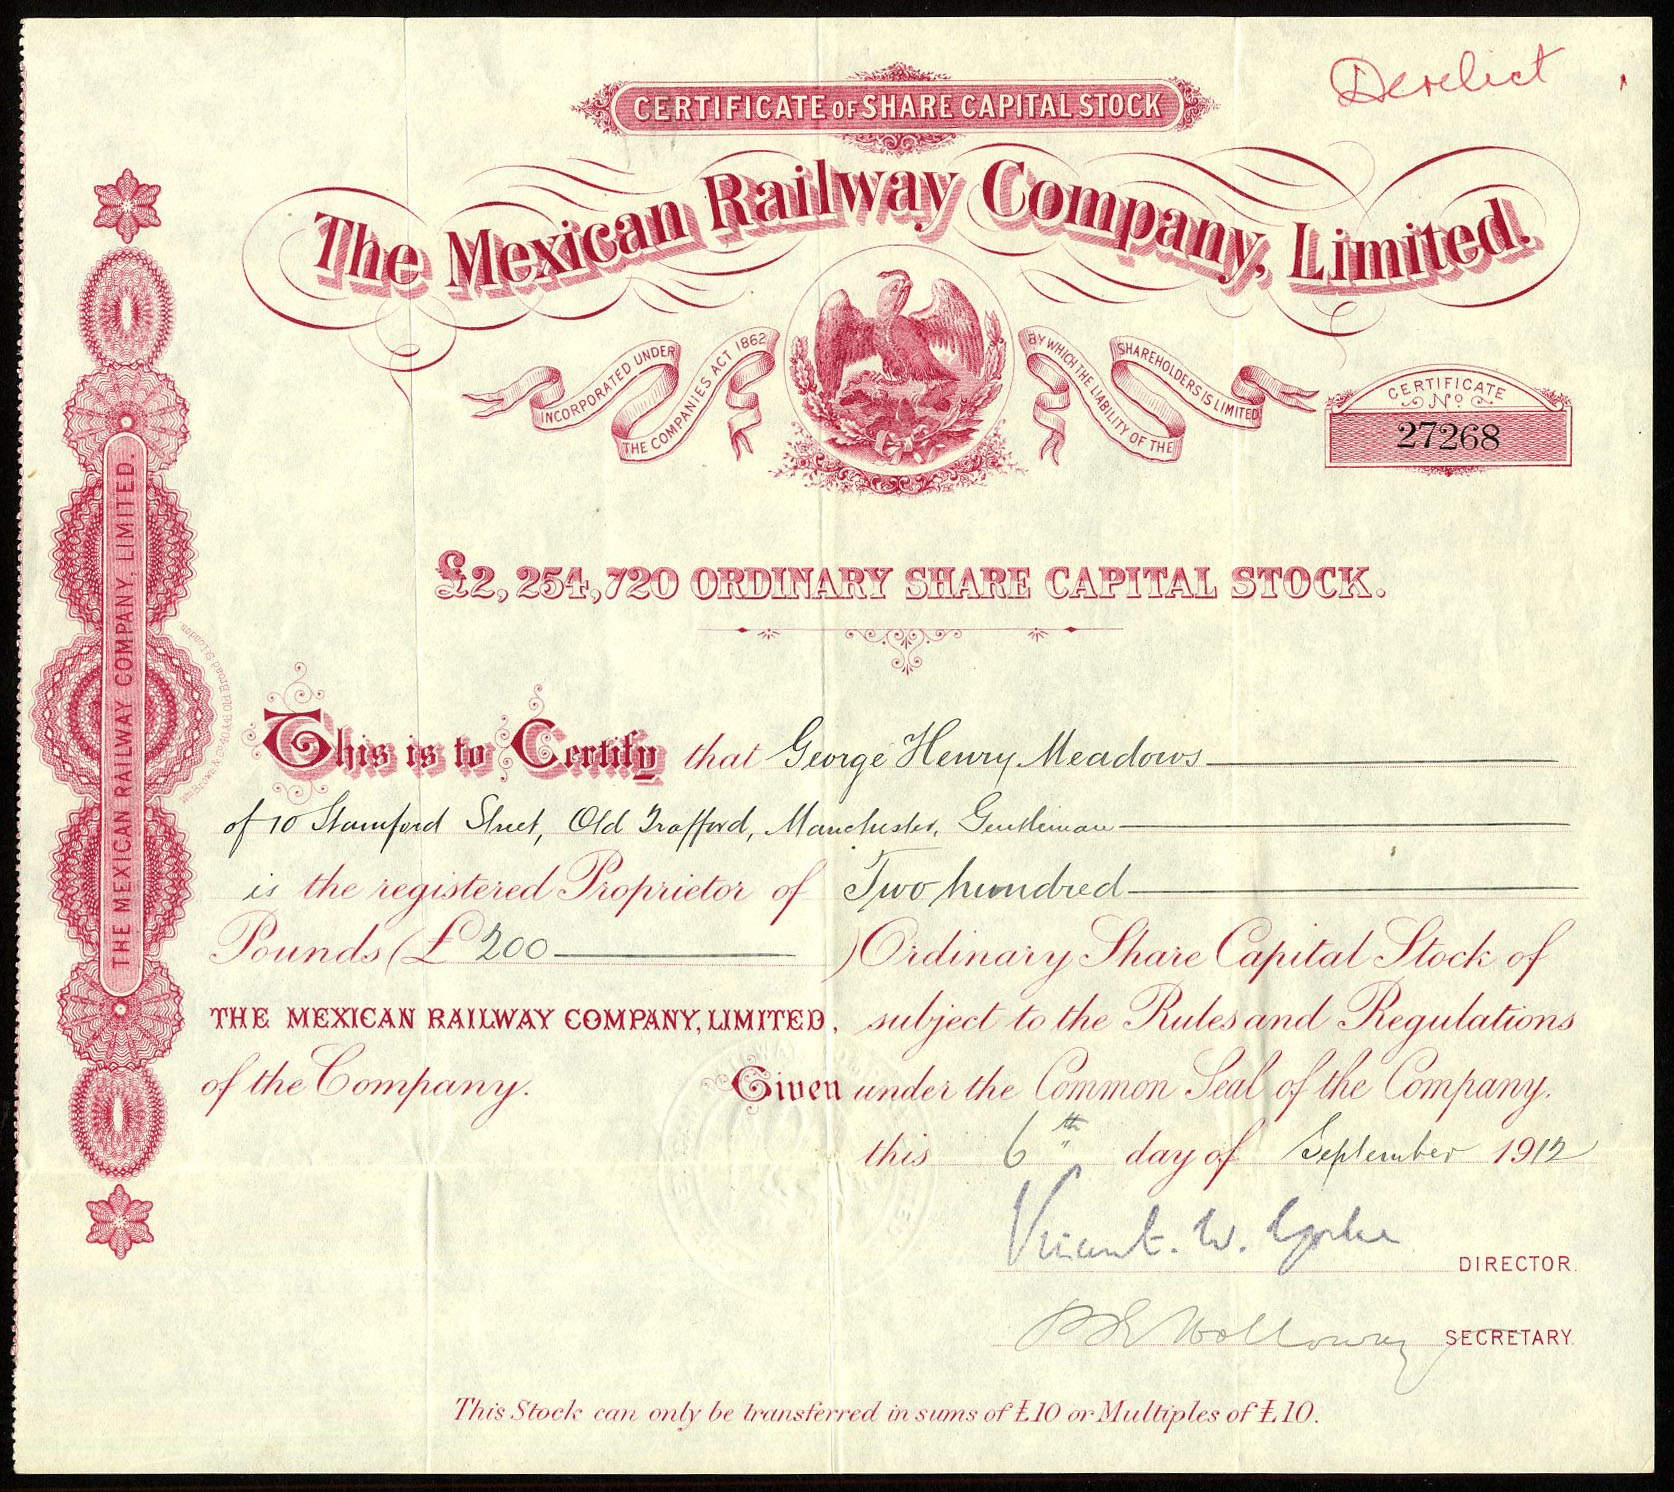 Derelict
CERTIFICATE OF SHARE CAPITAL STOCK
The Mexican Railway Company, Limited.
INCORPORATED UNDER
THE COMPANIES ACT 1862
BY WHICH THE LIABILITY OF THE
SHAREHOLDERS IS LIMITED
CERTIFICATE
No
27268
THE MEXICAN RAILWAY COMPANY, LIMITED.
£2,254,720 ORDINARY SHARE CAPITAL STOCK.
This is to Certify that George Henry Meadows
of 10 Stamford Street, Old Trafford, Manchester, Gentleman
is the registered Proprietor of Two hundred
Pounds (£ 200 ) Ordinary Share Capital Stock of
THE MEXICAN RAILWAY COMPANY, LIMITED, subject to the Rules and Regulations
of the Company. Given under the Common Seal of the Company.
this 6th day of September 1912
Vincent. W. Yorke
DIRECTOR.
Holloway
SECRETARY.
This Stock can only be transferred in sums of £10 or Multiples of £10.